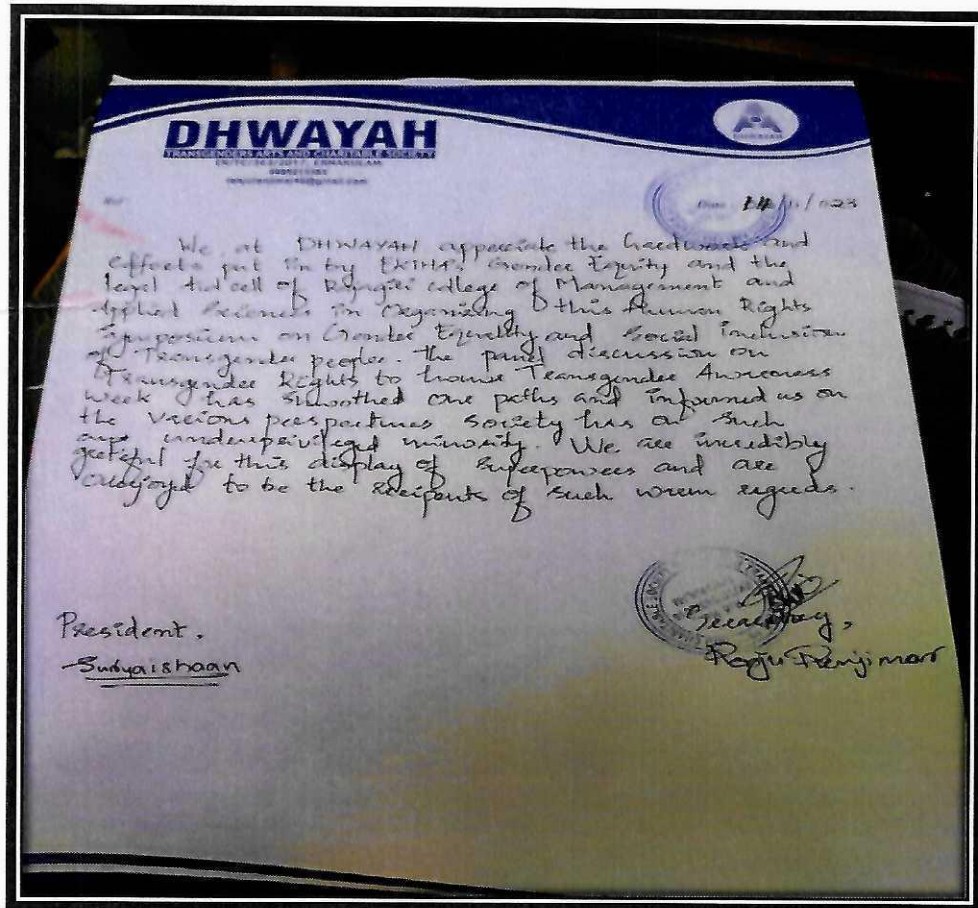 DHWAYAH
TRANSGENDERS ARTS AND CHARITABLE SOCIETY
We at DHWAYAH appeciate the hardwork and
effects put in by EKTHA, Gender Equity and the
legal Aid cell of Rajagiri college of Management and
Applied Sciences in Organising this Human Rights
Symposium on Gender Equality and Social Inclusion
of Transgender people. The panel discussion on
Transgender Rights to honour Transgender Awareness
week has smoothed our paths and informed us on
the various perspectives society has on such
underprivileged minority. We are incredibly
grateful for this display of Superpowers and are
overjoyed to be the recipents of such warm regards.
President,
Suryaishaan
Secretary,
Renju Renjimar